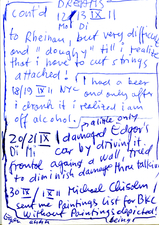 DREAMS
cont'd 12/13 IX 11
to Rheiman, but very difficult
and "doughy" till i realise
that i have to cut strings
attached!
I had a beer
18/19 IX 11 NYC and only after
i drank it i realized i am
off alcohol.
20/21 IX I damaged Edgar's
Di Mi car by driving it
frontal against a wall, tried
to diminish damage thru talking
30 IX / 1 X 11 Michael Chisolm /
sent me Paintings List for BKC
without Paintings depicted!